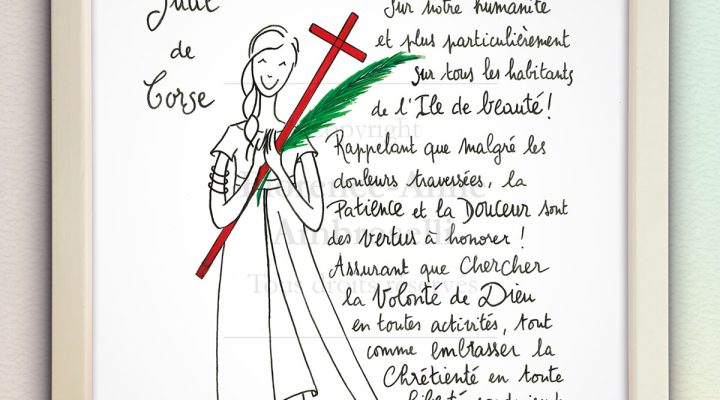 Julie
de
Corse
Sur notre humanité
et plus particulièrement
sur tous les habitants
de l'Ile de beauté !
Rappelant que malgré les
douleurs traversées, la
Patience et la Douceur sont
des vertus à honorer !
Assurant que Chercher
la Volonté de Dieu
en toutes activités, tout
comme embrasser la
Chrétienté en toute
liberté
Copyright
Florence-Anne
Ambroselli
Tous droits réservés